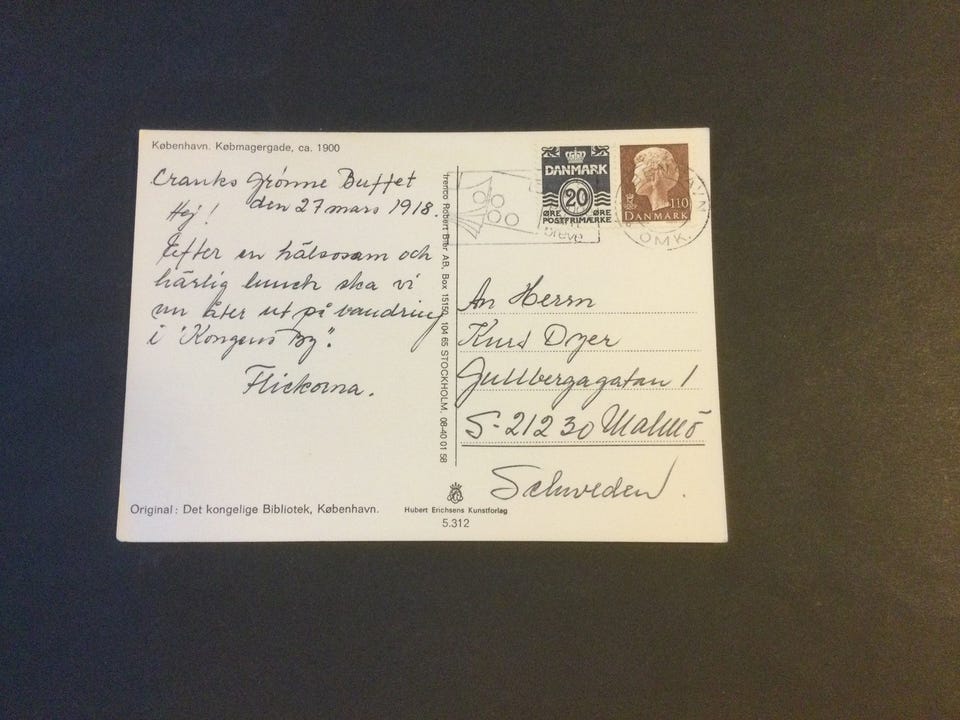 København. Købmagergade, ca. 1900
Cranks Grönne Buffet
den 27 mars 1918.
Hej!
Efter en hälsosam och
härlig lunch ska vi
nu åter ut på vandring
i "Kongens By".
Flickorna.
Original: Det kongelige Bibliotek, København.
Robert Bær AB, Box 15150, 104 65 STOCKHOLM. 08-40 01 58
Hubert Erichsens Kunstforlag
5.312
DANMARK
20
ØRE ØRE
POSTFRIMÆRKE
110
DANMARK
OMK.
breve
An Herrn
Kurs Dyer
Gullbergagatan 1
S-212 30 Malmö
Schweden.